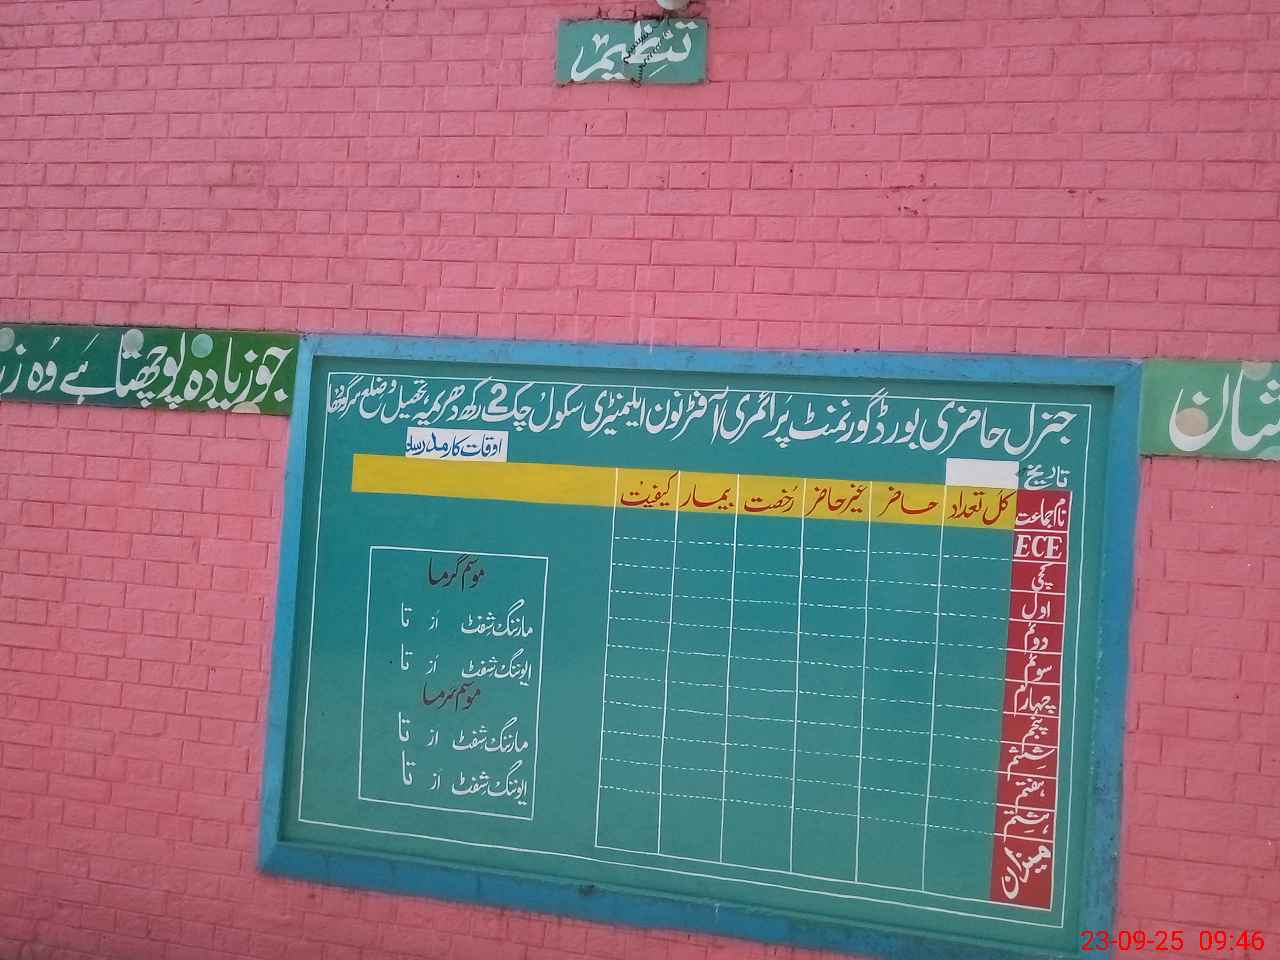 تنظیم
جو زیادہ پوچھتا ہے وہ
شان
جنرل حاضری بورڈ گورنمنٹ پرائمری / آفٹر نون ایلیمنٹری سکول چک 2 رکھ دھریمہ تحصیل و ضلع سرگودھا
اوقات کار مدرسہ
تاریخ
نام جماعت کل تعداد حاضر غیر حاضر رخصت بیمار کیفیت
ECE
کچی
اول
دوئم
سوئم
چہارم
پنجم
ششم
ہفتم
ہشتم
میزان
موسم گرما
مارننگ شفٹ از تا
ایوننگ شفٹ از تا
موسم سرما
مارننگ شفٹ از تا
ایوننگ شفٹ از تا
23-09-25 09:46